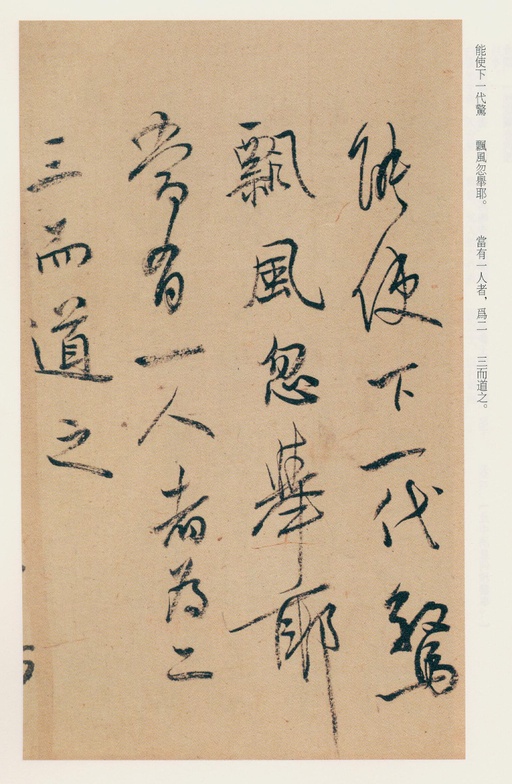 能使下一代驚　飄風忽舉耶。　當有一人者，爲二　三而道之。
能使下一代驚
飄風忽舉耶
當有一人者為二
三而道之